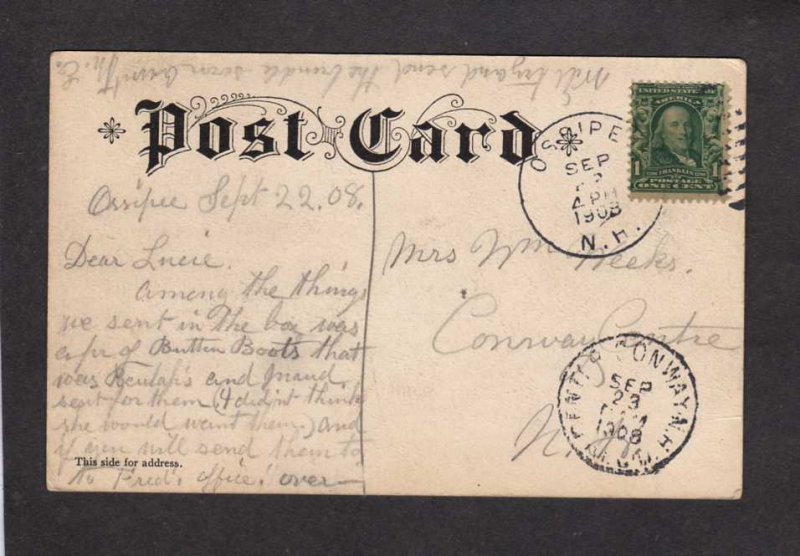 Will try and send the bundle soon
Post Card
OSSIPEE
SEP
4 PM
1908
N.H.
UNITED STATES OF
AMERICA
1
FRANKLIN
POSTAGE
1
ONE CENT
Ossipee Sept 22. 08.
Dear Lucie.
Among the things
we sent in the box was
a pr of Button Boots that
was Beulah's and Maud
sent for them (I didn't think
she would want them.) and
if you will send them to
to Fred's office. over
This side for address.
Mrs Wm Weeks.
Conway Centre
N. H.
CENTER CONWAY, N.H.
SEP
23
1908
REC'D.